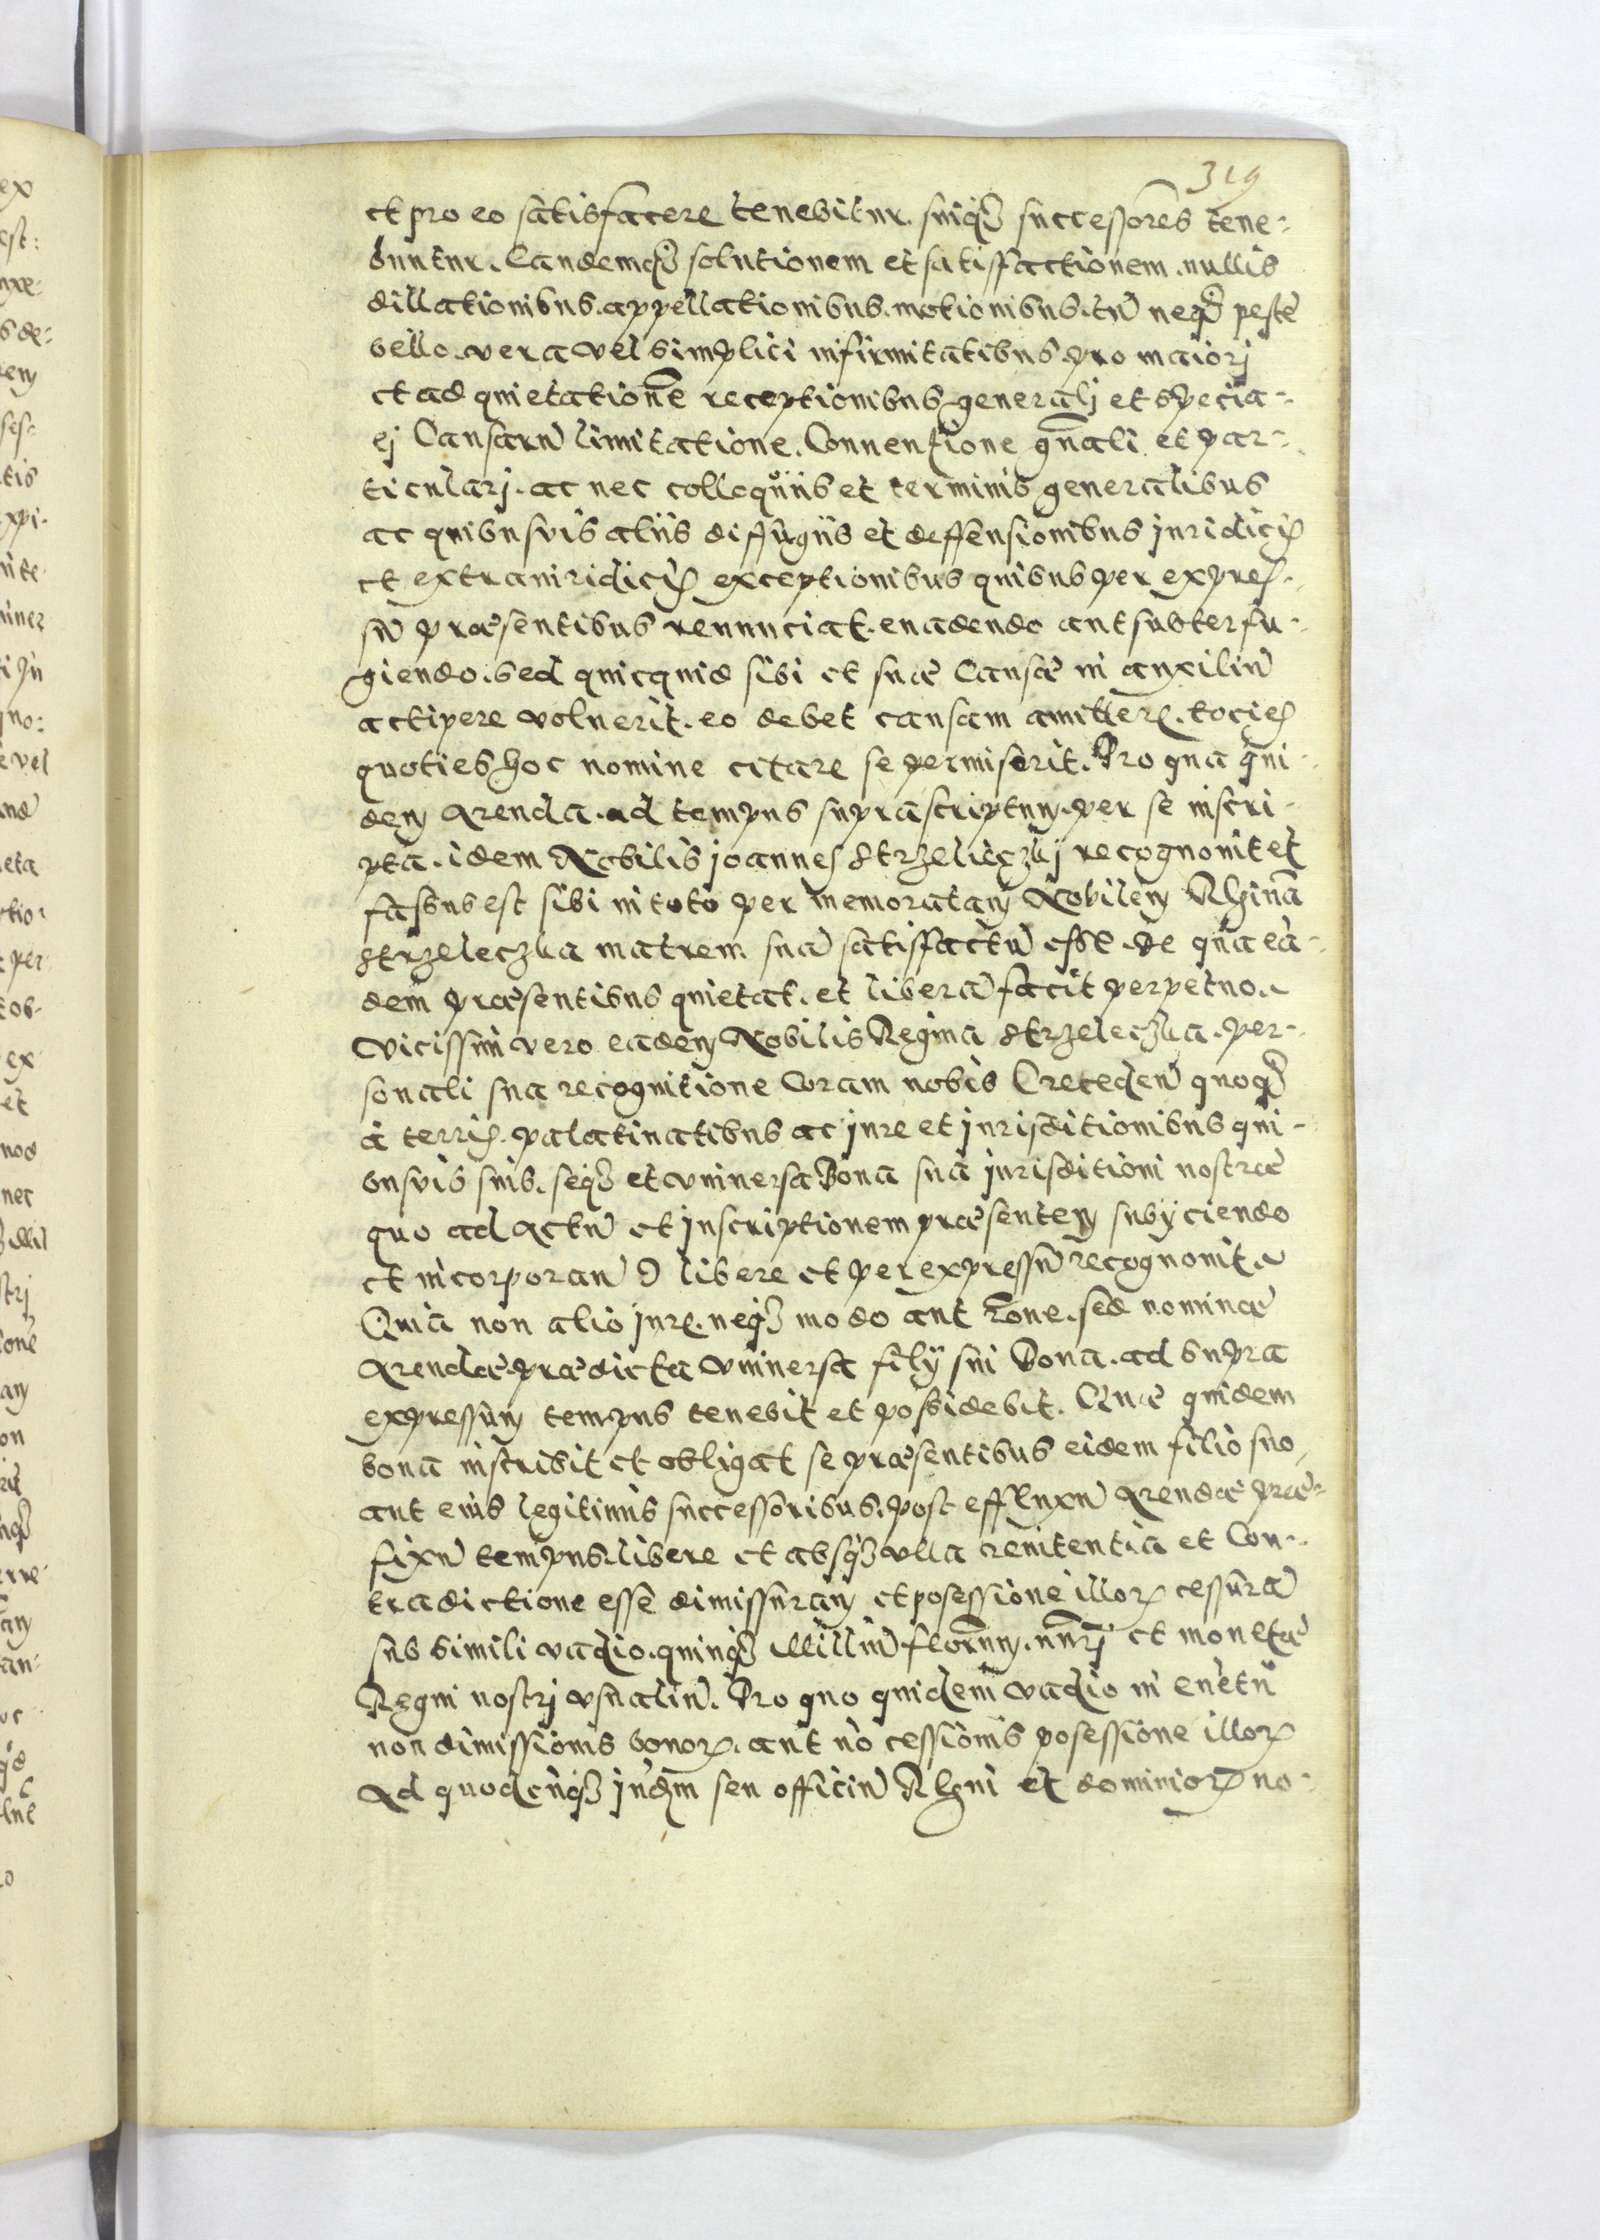 319
et pro eo satisfacere tenebitur. suiq3 successores tene-
buntur. Eandemq3 solutionem et satisffactionem. nullis
dillationibus. appellationibus. motionibus. tū neq3 peste
bello. vera vel simplici infirmitatibus. pro maiorj
et ad quietationē receptionibus generalj et specia-
ej Causarū limitatione. Conuentione gnāli et par-
ticularj. ac nec colloquiis et terminis generalibus
ac quibusuis aliis diffugiis et deffensionibus juridicis
et extraiuridicis exceptionibus quibus per expres-
sū præsentibus renunciat. euadendo aut subterfu-
giendo. sed quicquid sibi et suæ Causæ in auxiliū
accipere voluerit. eo debet causam amittere. tocies
quoties hoc nomine citare se permiserit. Pro qua qui-
dem Arenda. ad tempus suprascriptum. per se inscri-
pta. idem Nobilis joannes Strzeliczkj recognouit et
fassus est sibi in toto per memoratam Nobilem Rginā
Strzeleczka matrem suā satisffactū esse. de qua eā-
dem præsentibus quietat. et liberā facit perpetuo.
Vicissim vero eadem Nobilis Regina Strzeleczka. per-
sonali sua recognitione Coram nobis Recedeñ quoq3
à terris. palatinatibus ac jure et jurisditionibus qui-
busuis suis. seq3 et vniuersa Bona sua jurisditioni nostræ
quo ad Actū et jnscriptionem præsentem subijciendo
et incorporanō libere et per expressū recognouit.
Quia non alio jure. neq3 modo aut rōne. sed nominæ
Arendæ prædicta vniuersa filij sui Bona. ad supra
expressum tempus tenebit et possidebit. Quæ quidem
bona inscribit et obligat se præsentibus eidem filio suo,
aut eius legitimis successoribus. post effluxū Arendæ præ-
fixū tempus. libere et absq3 vlla renitentia et Con-
tradictione esse dimissuram et posessione illorū cessurā
sub simili vadio. quinq3 Milliū florenum. nūrj et monetæ
Regni nostrj vsualiū. Pro quo quidem vadio in euētū
non dimissionis bonorū. aut nō cessionis posessione illorū
Ad quodcūq3 judm seu officiū Rgni et dominiorū no-